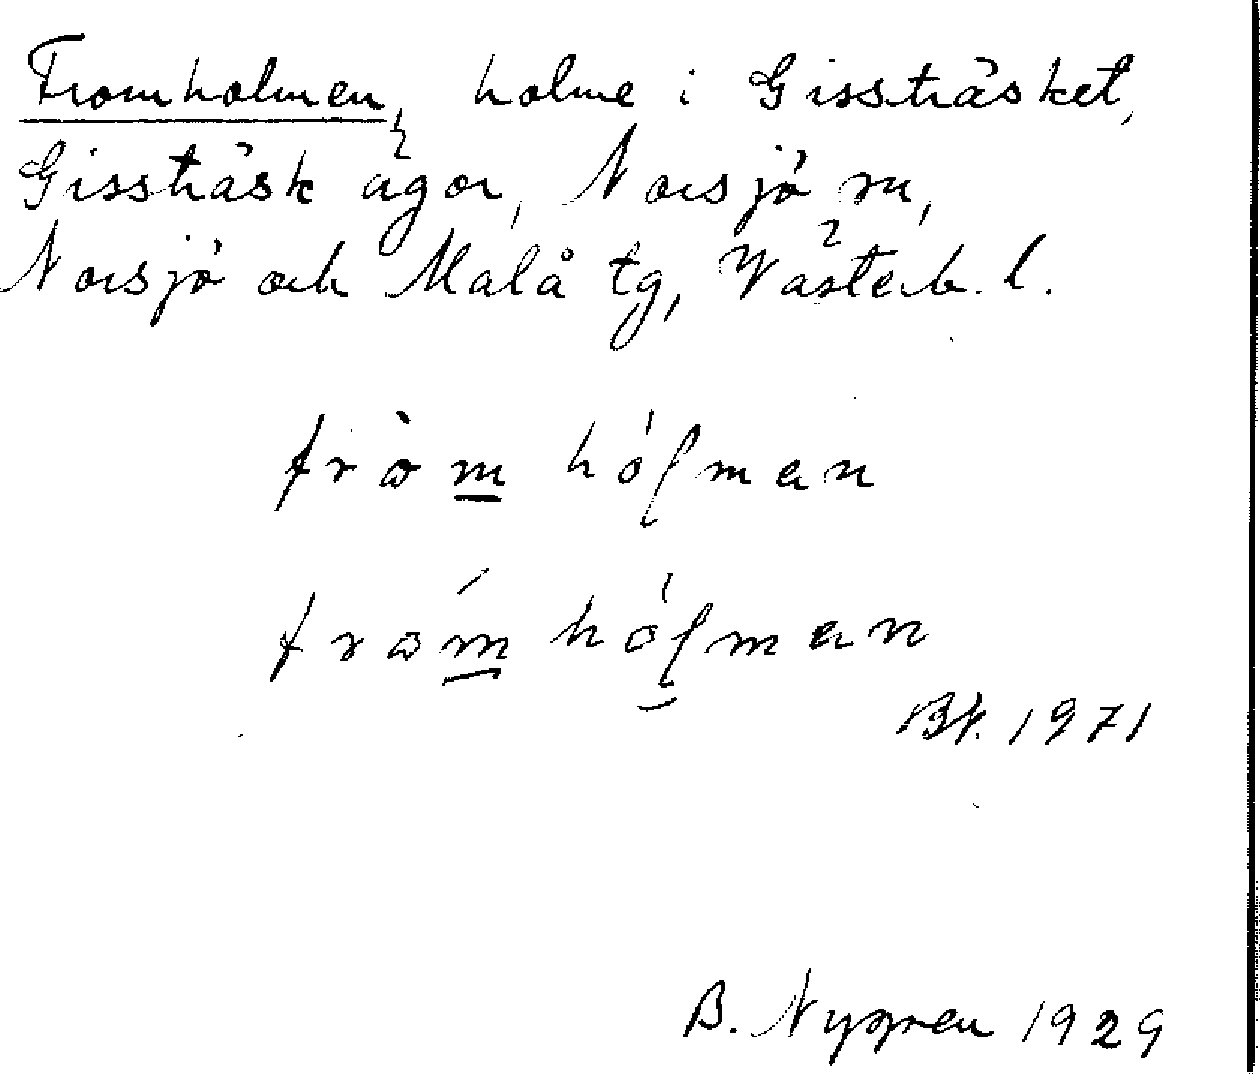 Fromholmen, holme i Gissträsket,
Gissträsk ägor, Norsjö sn,
Norsjö och Malå tg, Västerb. l.
fròm hólman
from̀ hólman
Bk. 1971
B. Nygren 1929